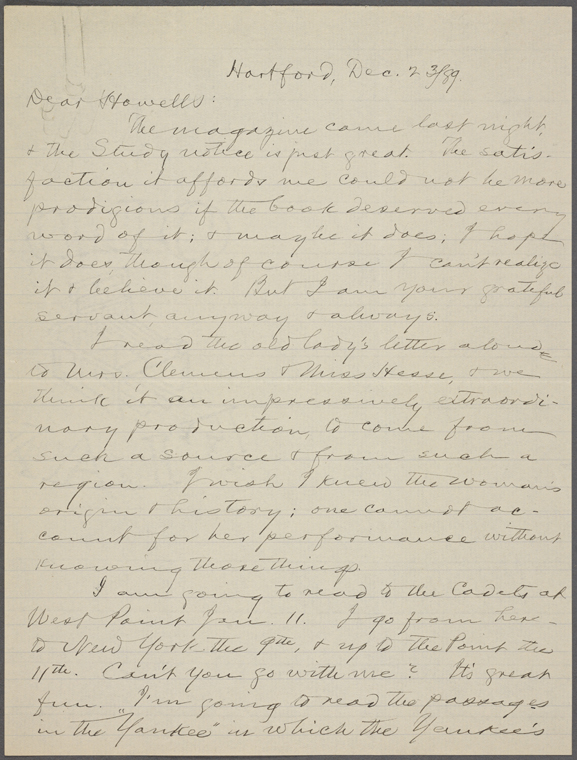 Hartford, Dec. 23/89.
Dear Howells:
The magazine came last night,
& the Study notice is just great. The satis-
faction it affords me could not be more
prodigious if the book deserved every
word of it; & maybe it does; I hope
it does, though of course I can't realize
it & believe it. But I am your grateful
servant, anyway & always.
I read the old lady's letter aloud
to Mrs. Clemens & Miss Hesse, & we
think it an impressively extraordi-
nary production, to come from
such a source & from such a
region. I wish I knew the woman's
origin & history; one cannot ac-
count for her performance without
knowing those things.
I am going to read to the Cadets at
West Point Jan. 11. I go from here
to New York the 9th, & up to the Point the
11th. Can't you go with me? It's great
fun. I'm going to read the passages
in the "Yankee" in which the Yankee's